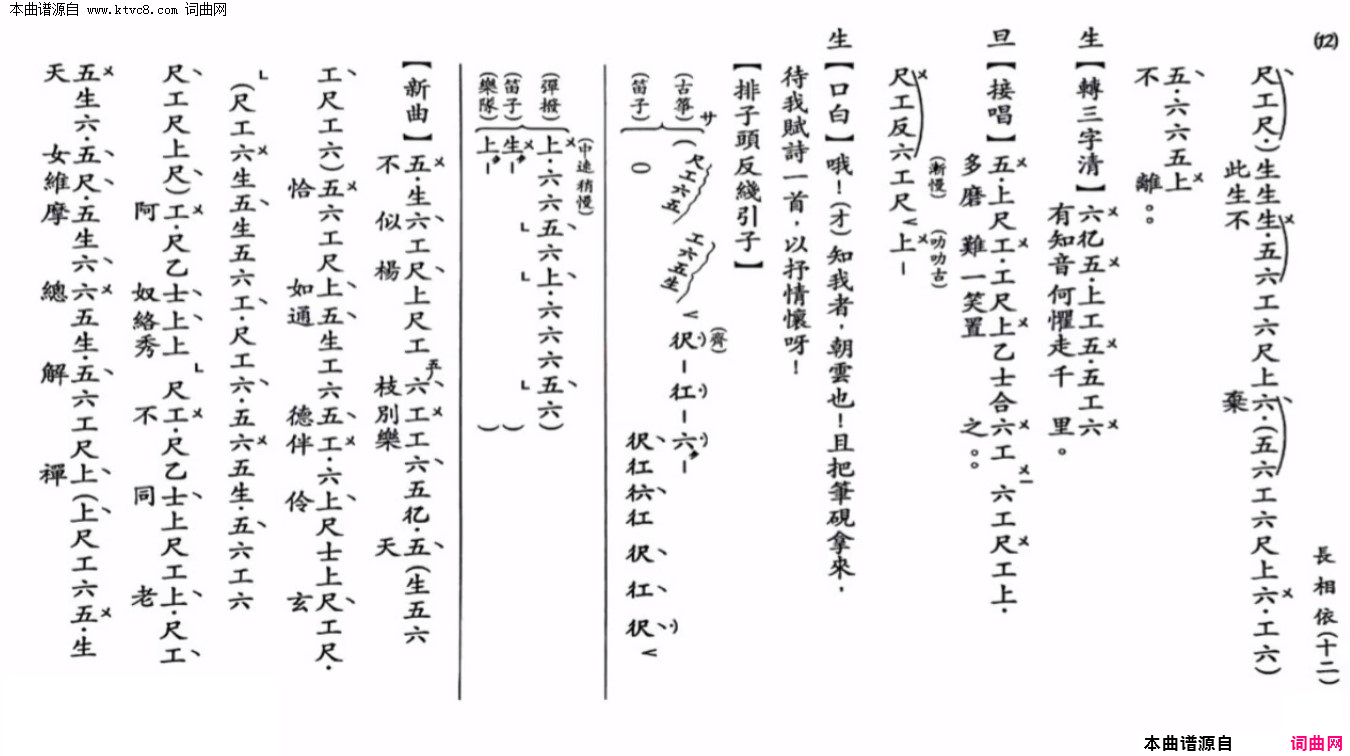 本曲谱源自 www.ktvc8.com 词曲网
(12)
長相依(十二)
尺工尺·)生生生·五六工六尺上六·(五六工六尺上六·工六)
此生不 棄
五·六六五上
不 離。。
生【轉三字清】六伬五·上工五·五工六
有知音何懼走千 里。
旦【接唱】五·上尺工·工尺上乙士合六工 六工尺工上·
多磨 難一笑置 之。。
尺工反六工尺上—
(漸慢) (叻叻古)
生【口白】哦!(才)知我者,朝雲也!且把筆硯拿來,
待我賦詩一首,以抒情懷呀!
【排子頭反綫引子】
(古箏) サ (尺工六五 工六五生 伬—仜—六—
(齊)
(笛子) 0 伬仜𠆾仜 伬 仜 伬
(中速稍慢)
(彈撥) 上·六六五六上·六六六五六)
(笛子) 生— )
(樂隊) 上— )
【新曲】五·生六工尺上尺工六工工六五伬·五(生五六
不 似楊 枝別樂 天
工尺工六)五六工尺上五生工六五工·六上尺士上尺工尺·
恰 如通 德伴 伶 玄
(尺工六生五生五六工·尺工六·五六五生·五六工六
尺工尺上尺)工·尺乙士上上 尺工·尺乙士上尺工上·尺工
阿 奴絡秀 不 同 老
五生六·五尺·五生六六五生·五六工尺上(上尺工六五·生
天 女維摩 總 解 禪
本曲谱源自 词曲网